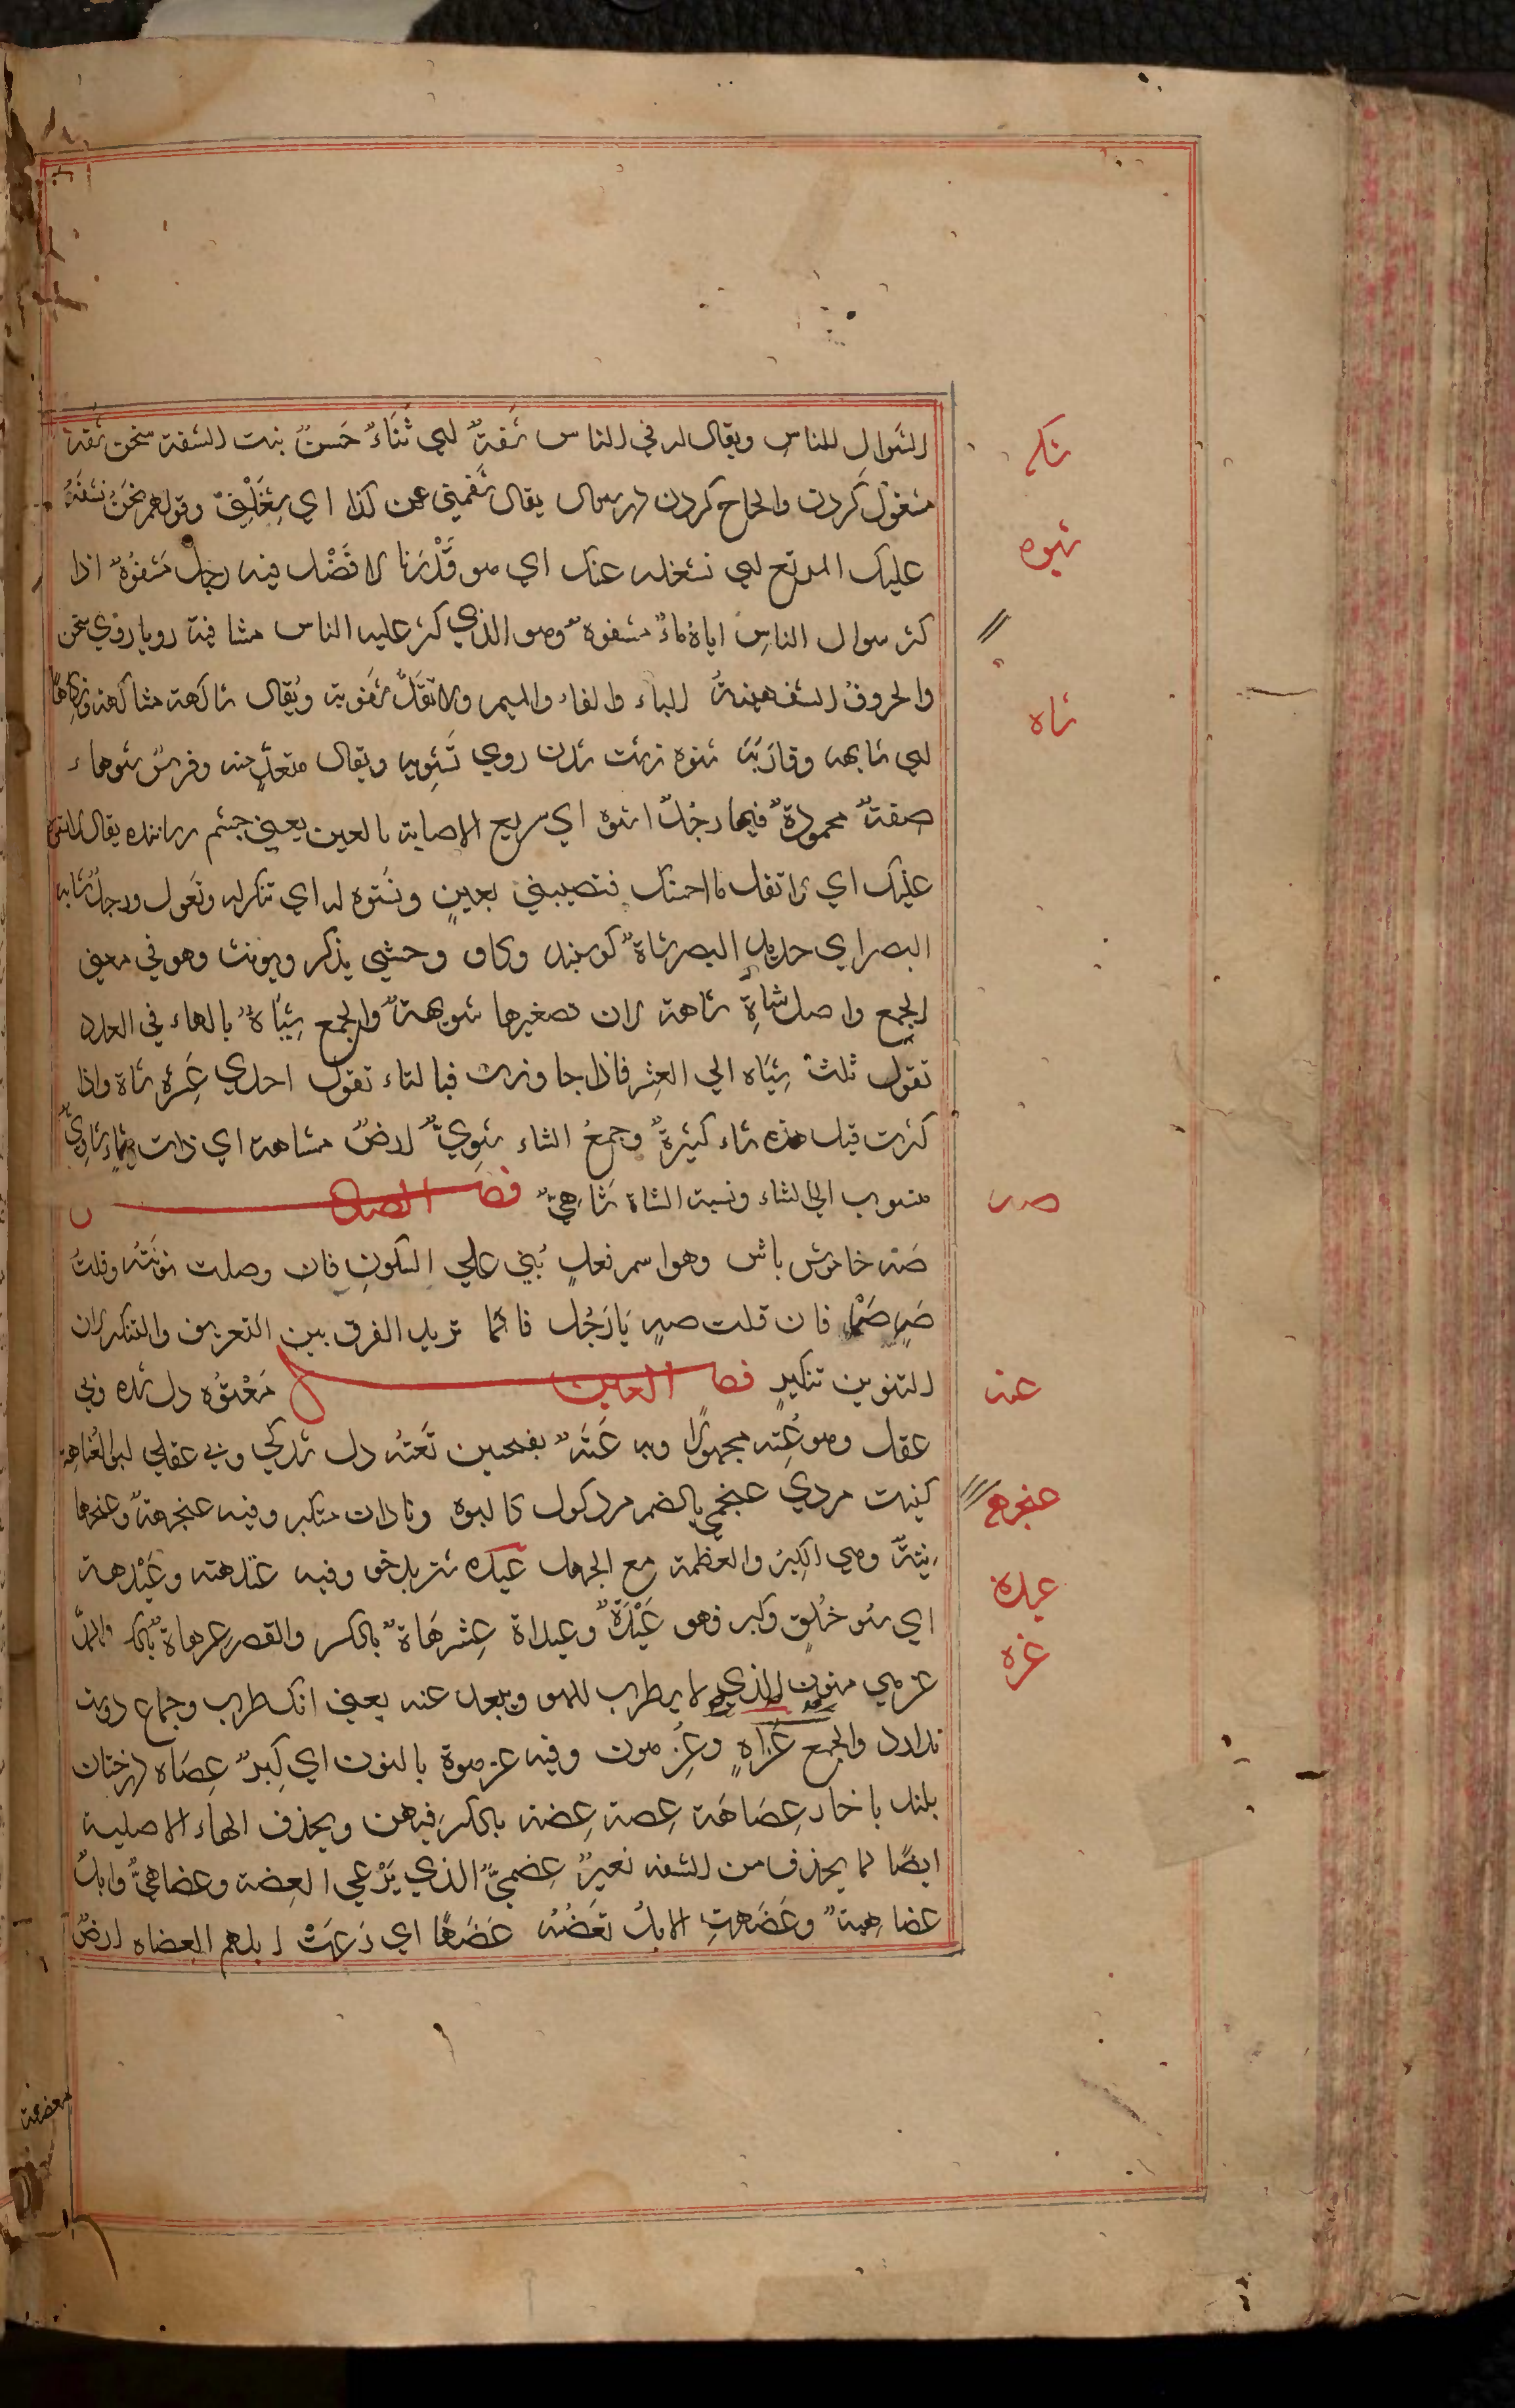 السوال للناس ويقال له في الناس شفةٌ اي ثَنَاءٌ حَسنٌ بنت الشفة سخن شفه
مشغول كردن والحاح كردن در سوال يقال شفهني عن كذا اي شغَلَني وقولهم نحنُ نشفَهُ
عليك المرتع اي نشغله عنك اي هو قَدْرَنا لا فَضْل فيه رجل مَشفوُهٌ اذا
كثر سوال الناسِ اياه ماءٌ مشفوه وهو الذي كثر عليه الناس مشافهة رويا روي سخن
والحروفُ الشفهيةُ الباء والفاء والميم ولا تقلْ شفوية ويُقال شاكهه مشاكهة
اي شابهه وقاربَه شوه زشت شدن روي تَشويه ويقال متعدٍّ منه وفرسٌ شوهاء
صفةٌ محمودةٌ فيها رجُلٌ اشوه اي سريع الاصابة بالعين يعني چشم رساننده يقال لا تشوه
عليك اي لا تقل ما احسنك فتصيبني بعينٍ وتَشوه له اي تنكر له وتَغول ورجلٌ شايه
البصر اي حديد البصر شاةٌ كوسبند وكاو وحشي يذكر ويونث وهو في معني
الجمع واصل شاةٍ شاهة لان تصغيرها شويهةٌ والجمع شِيَاهٌ بالهاء في العدد
تقول ثلث شِيَاه الي العشر فاذا جاوزت فبالتاء تقول احدي عَشرة شاة واذا
كثرت قيل هذه شاء كثيرةٌ وجمعُ الشاء شَوِيٌّ ارضٌ مشاهة اي ذات شاءٍ شاويٌّ
منسوب الي الشاء ونسبة الشاة شَاهِيٌّ فصل الصاد
صَه خاموش باش وهو اسم فعلٍ بُني علي السكونِ فان وصلت نونته وقلتُ
صَهٍ صَهْ فان قلت صهٍ يَا رَجُل فانما تريد الفرق بين التعريف والتنكير لان
التنوين تنكيرٍ فصل العين مَعْتوُه دل شده وبي
عقل وهو عُتِه مجهولًا وبه عَتَهٌ بفتحين تَعَته دل شدكي وبي عقلي ابو العُتاهية
كنيت مردي عنجهي بالضم مرد كول كالبوه ونادان متكبر وفيه عنجهةٌ
وهي الكبِر والعظمة مع الجهل عيده شتر بدخو وفيه عَندهة وعَيْدهة
اي سوء خُلقٍ وكبر فهو عَيْدَهٌ وعيداه عِزْهَاةٌ بالكسر والقصر عزهاةٌ بالكسر والمد
عزهي منون الذي لا يطرب للهو ويبعد عنه يعني انك طرب وجماع دوست
ندارد والجمع عَزَاهٍ وعِزهون وفيه عنزهوة بالنون اي كِبرٌ عِضَاه درختان
بلند با خار عِضَاهَة عِضة عِضه بالكسر فيهن ويحذف الهاء الاصلية
ايضًا كما يحذف من الشفه بعيرٌ عِضهيٌّ الذي يَرْعي العِضة وعضاهيٌّ وابلٌ
عضاهيةٌ وعَضَهتِ الابلُ تعَضَهُ عَضَهًا اي رَعَتْ ابلهم العضاه ارضٌ
شكه
شوه
شاه
صه
عته
عنجهي
عيده
عزه